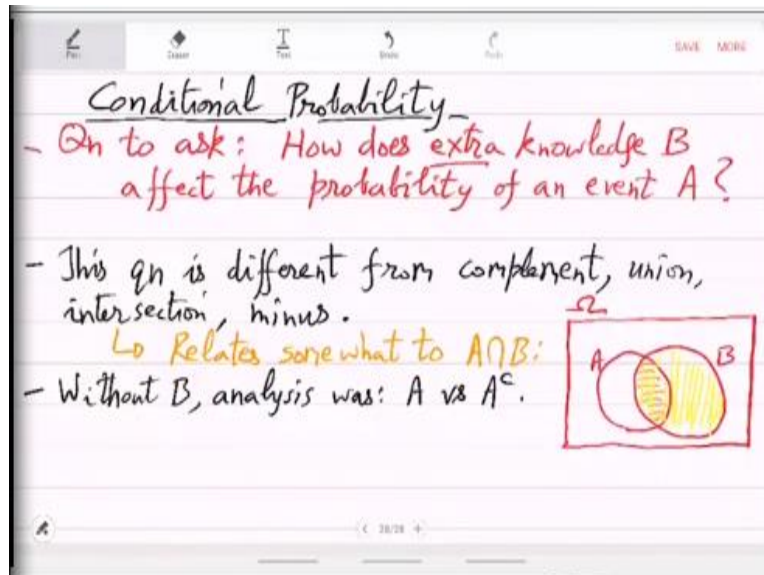 Pen Eraser Text Undo Redo SAVE MORE
Conditional Probability
- Qn to ask: How does extra knowledge B
affect the probability of an event A?
- This qn is different from complement, union,
intersection, minus.
Ω
↳ Relates somewhat to A∩B:
A B
- Without B, analysis was: A vs Aᶜ.
< 28/28 +